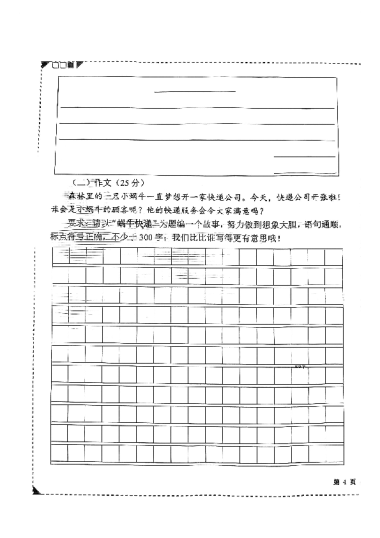 （二）作文（25分）
森林里的一只小蜗牛一直梦想开一家快递公司。今天，快递公司开张啦！
谁会是小蜗牛的顾客呢？他的快递服务会令大家满意吗？
要求：请以“蜗牛快递”为题编一个故事，努力做到想象大胆，语句通顺，
标点符号正确，不少于300字，我们比比谁写得更有意思哦！
第 4 页